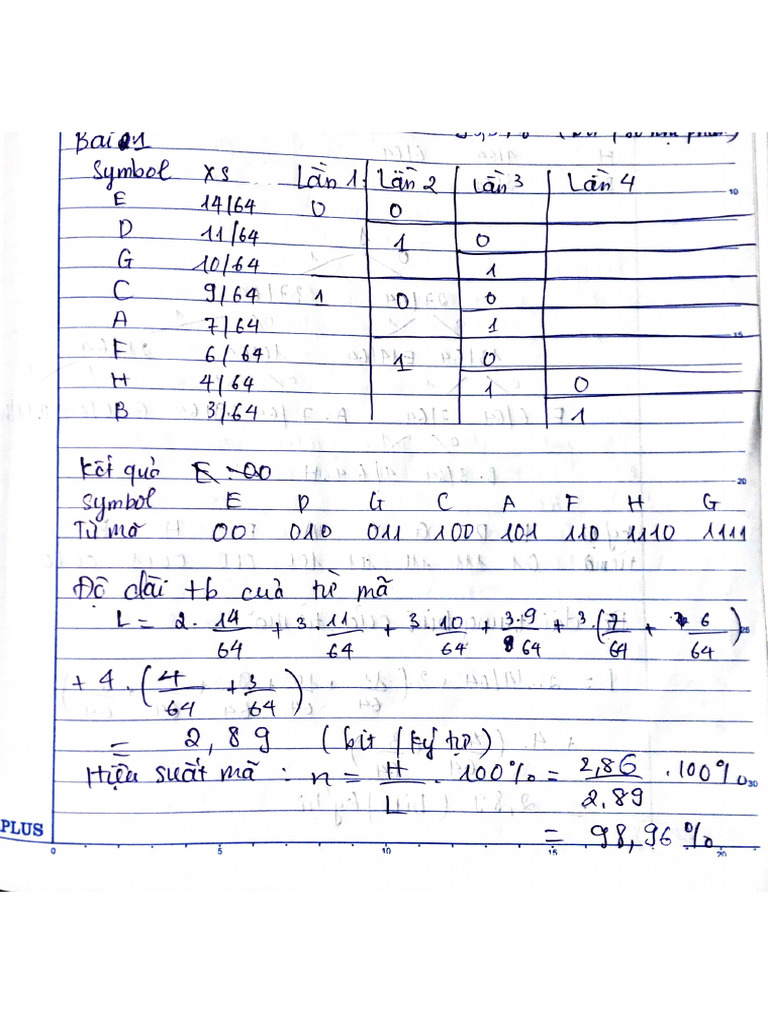 Bài 1
Symbol XS Lần 1 Lần 2 Lần 3 Lần 4
E 14/64 0 0
D 11/64 1 0
G 10/64 1
C 9/64 1 0 0
A 7/64 1
F 6/64 1 0
H 4/64 1 0
B 3/64 1
Kết quả E: 00
Symbol E D G C A F H G
Từ mã 00 010 011 100 101 110 1110 1111
Độ dài tb của từ mã
L = 2. 14/64 + 3. 11/64 + 3 10/64 + 3.9/64 + 3.(7/64 + 6/64)
+ 4. (4/64 + 3/64)
= 2,89 (bit/ký tự)
Hiệu suất mã: n = H/L . 100% = 2,86/2,89 .100%
= 98,96%
PLUS
0 5 10 15 20
10
15
20
25
30